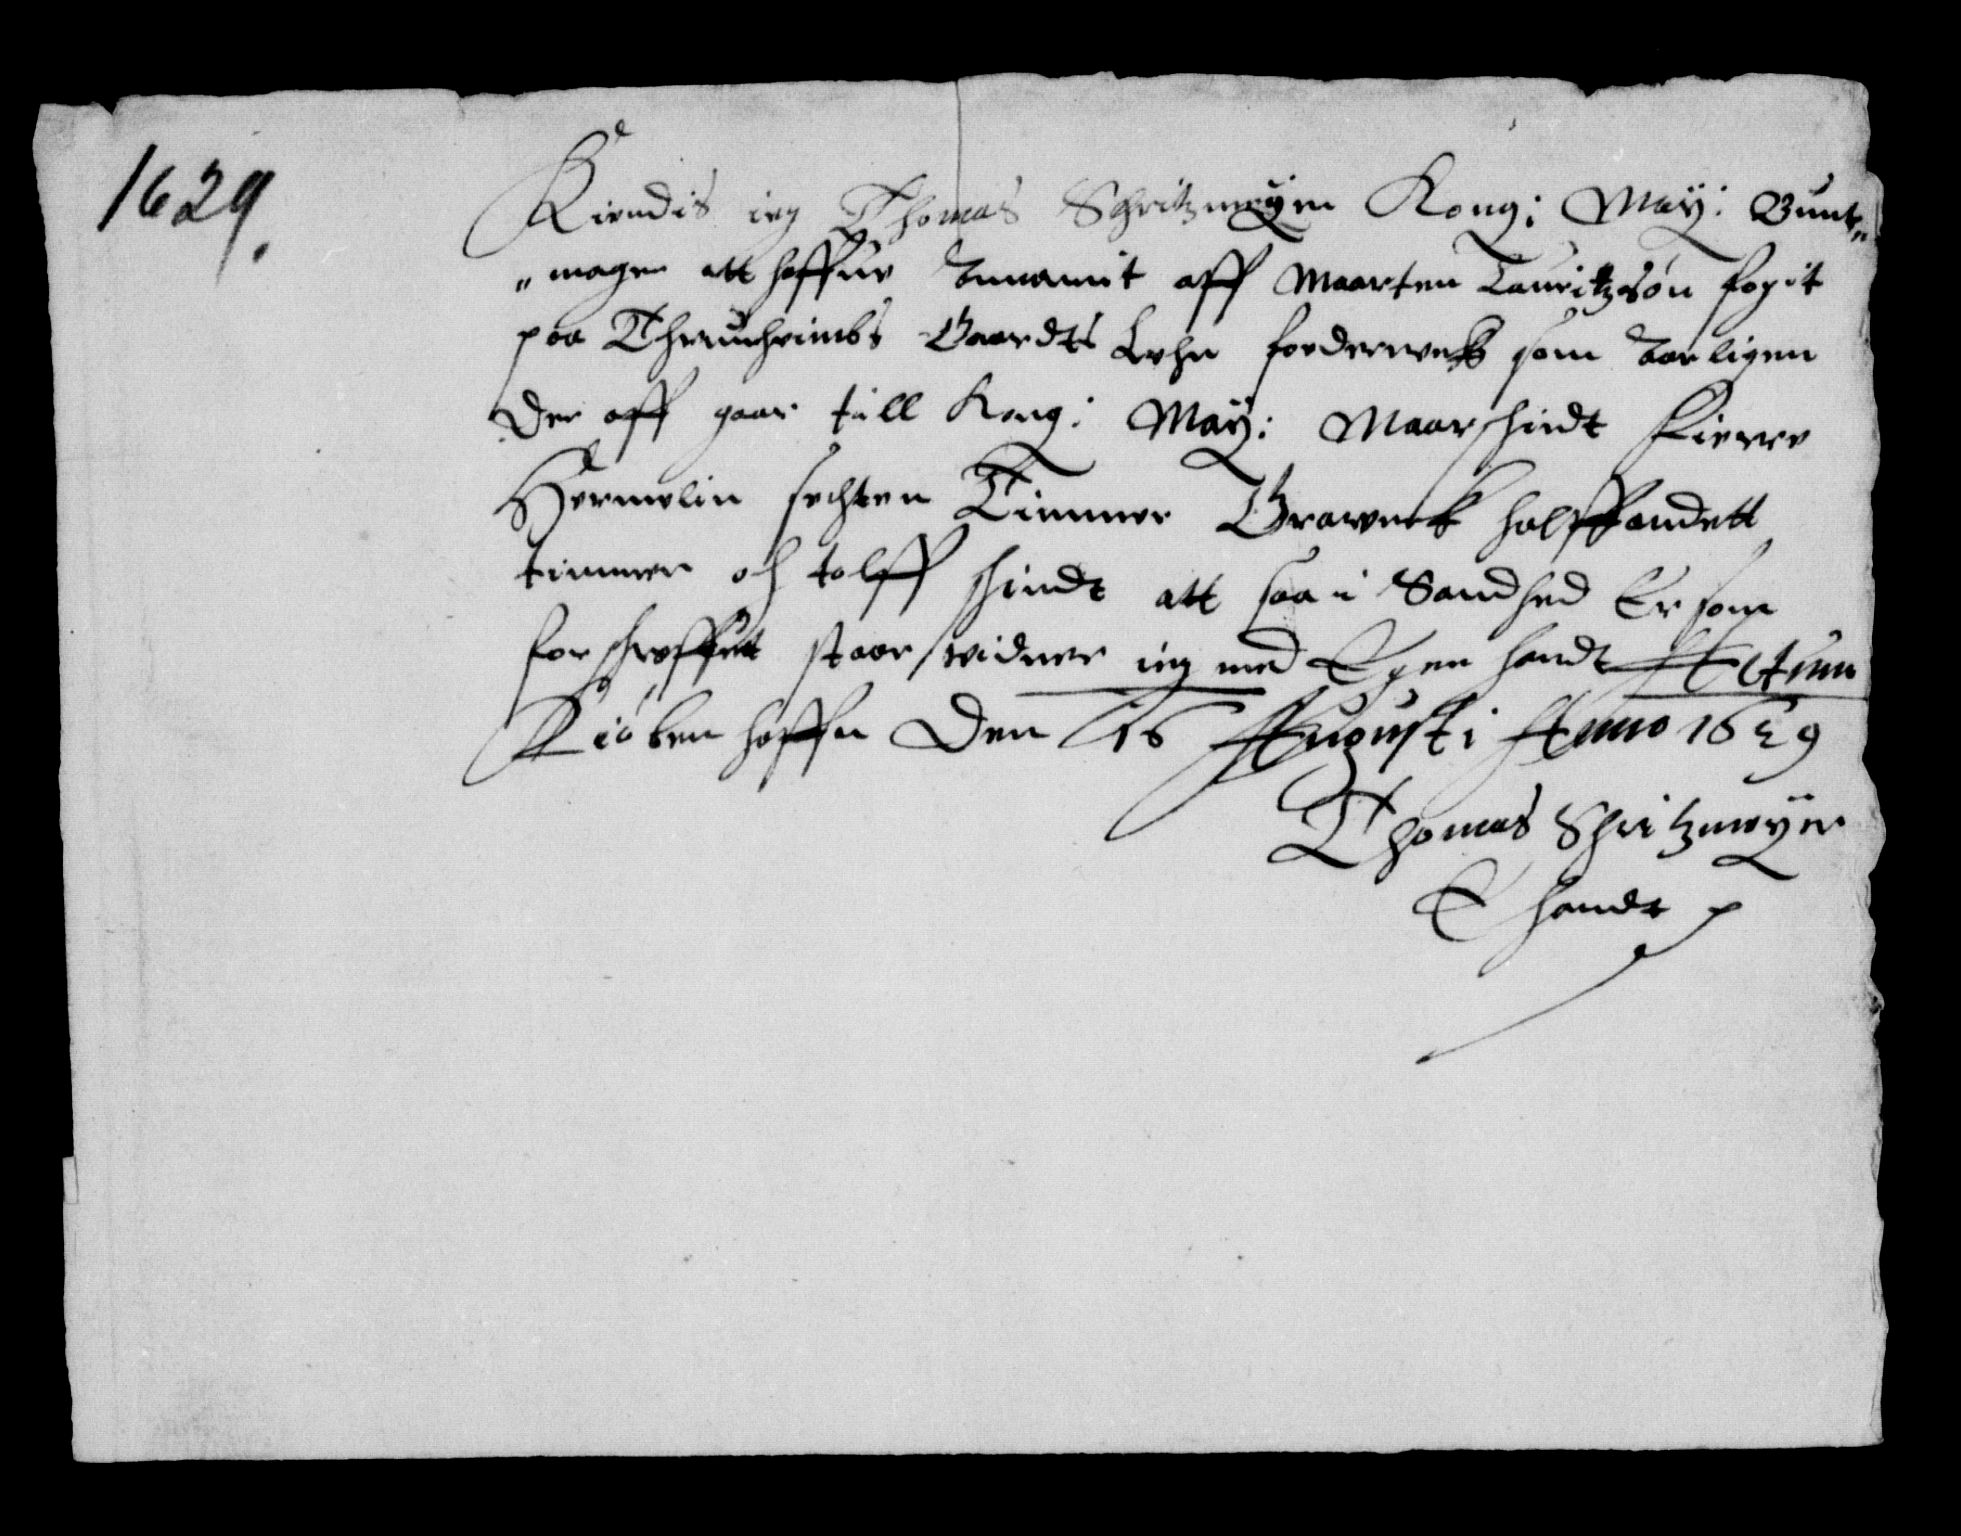 1629.
Kiendis ieg Thomas Schritzmeÿer Kong: Maÿ: Bunt„
„mager att haffue Annamit aff Maarten Lauritzsøn fogit
paa Thrundheimbs Gaardts Lehn foderverk som Aarligen
Der aff gaar till Kong: Maÿ: Maarschindt fierre
Hermelin sechten Timmer Grawerck halffandett
timmer och tolff schindt att saa i Sandhed Er som
forschreffuet staar widner ieg med Egen handt Actum
Kiøbenhaffn Den 16 Augusti Anno 1629
Thomas Schritzmeÿer
E handt